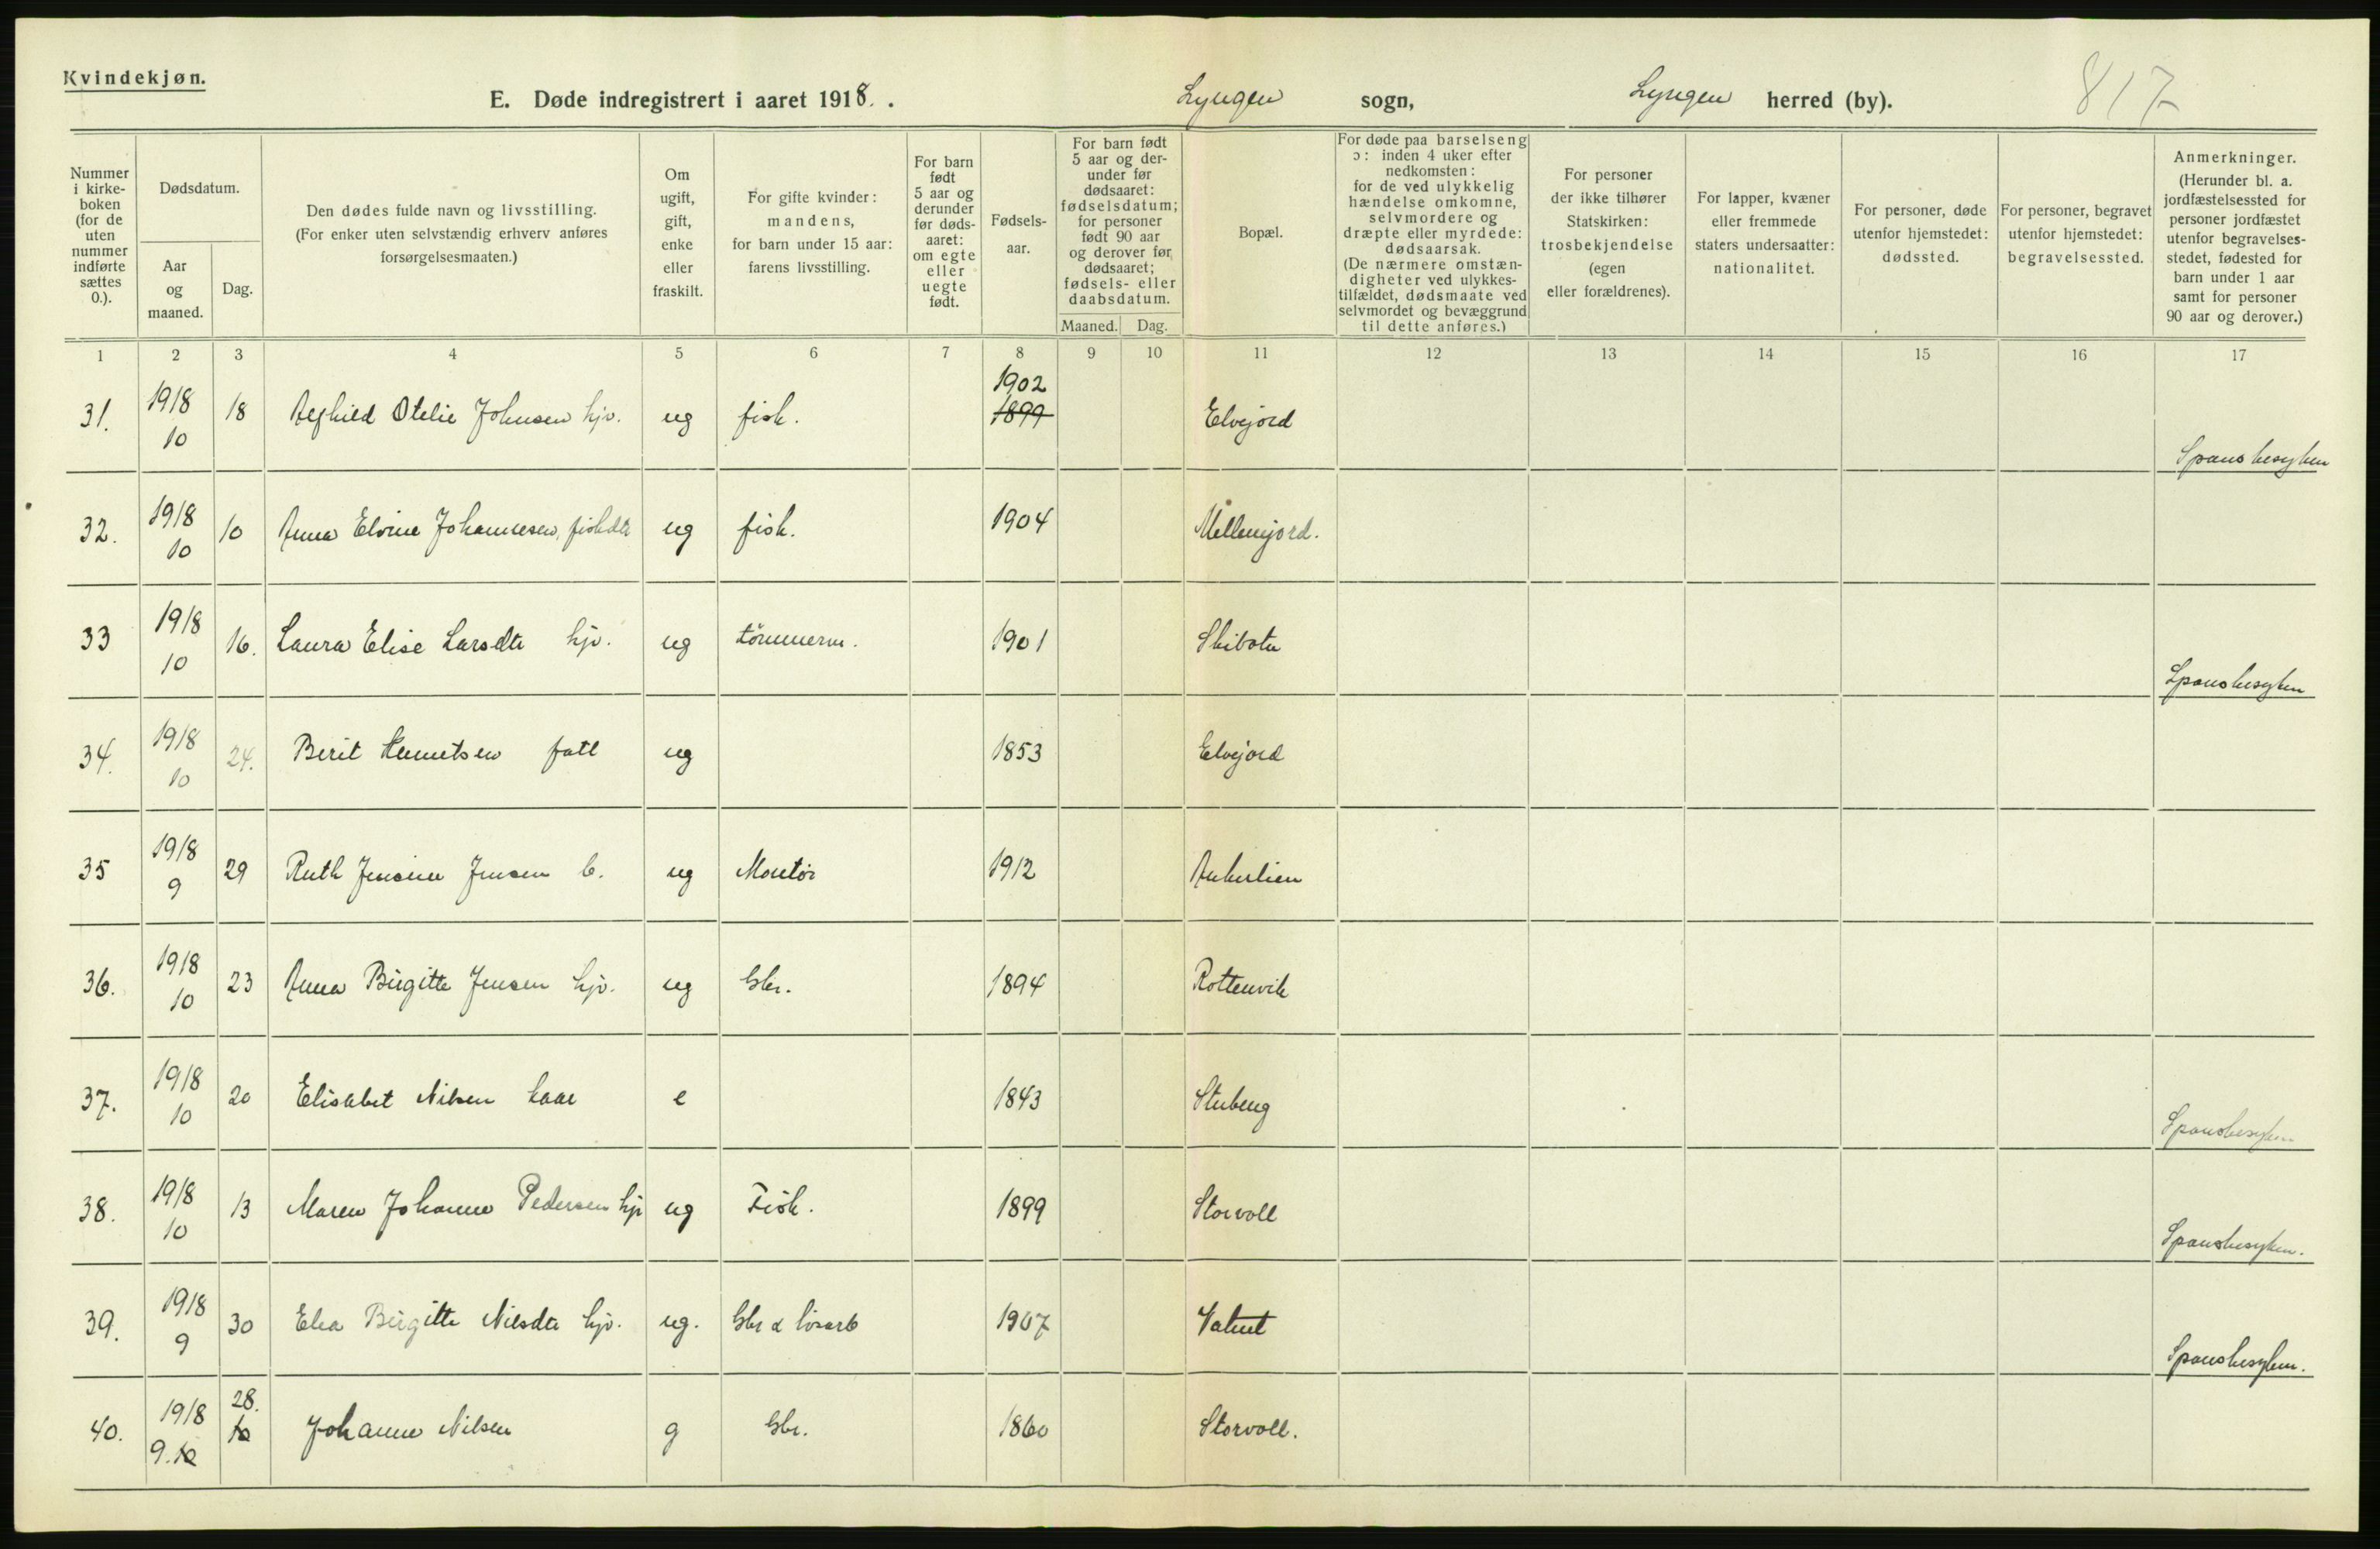 Kvindekjøn.
E. Døde indregistrert i aaret 1918. . Lyngen sogn, Lyngen herred (by). 817
Nummer i kirkeboken (for de uten nummer indførte sættes 0.).
Dødsdatum.
Aar og maaned.
Dag.
Den dødes fulde navn og livsstilling.
(For enker uten selvstændig erhverv anføres
forsørgelsesmaaten.)
Om
ugift,
gift,
enke
eller
fraskilt.
For gifte kvinder:
mandens,
for barn under 15 aar:
farens livsstilling.
For barn
født
5 aar og
derunder
før døds-
aaret:
om egte
eller
uegte
født.
Fødsels-
aar.
For barn født
5 aar og der-
under før
dødsaaret:
fødselsdatum;
for personer
født 90 aar
og derover før
dødsaaret;
fødsels- eller
daabsdatum.
Maaned. Dag.
Bopæl.
For døde paa barselseng
ɔ: inden 4 uker efter
nedkomsten:
for de ved ulykkelig
hændelse omkomne,
selvmordere og
dræpte eller myrdede:
dødsaarsak.
(De nærmere omstæn-
digheter ved ulykkes-
tilfældet, dødsmaate ved
selvmordet og bevæggrund
til dette anføres.)
For personer
der ikke tilhører
Statskirken:
trosbekjendelse
(egen
eller forældrenes).
For lapper, kvæner
eller fremmede
staters undersaatter:
nationalitet.
For personer, døde
utenfor hjemstedet:
dødssted.
For personer, begravet
utenfor hjemstedet:
begravelsessted.
Anmerkninger.
(Herunder bl. a.
jordfæstelsessted for
personer jordfæstet
utenfor begravelses-
stedet, fødested for
barn under 1 aar
samt for personer
90 aar og derover.)
1 2 3 4 5 6 7 8 9 10 11 12 13 14 15 16 17
31. 1918 10 18 Otelie Johnsen hjv. ug fisk. 1902 1899 Elvejord Spanskesyken
32. 1918 10 10 Anna Elvine Johannesen, fiskdtr ug fisk. 1904 Mellemjord.
33 1918 10 16. Laura Elise Larsdtr hjv. ug tømmerm. 1901 Skibotn Spanskesyken
34. 1918 10 24. Berit fatt ug 1853 Elvejord
35 1918 9 29 Ruth Jensine Jensen b. ug Montør 1912 Ankerlien
36. 1918 10 23 Anna Birgitte Jensen hjv. ug Gbr. 1894 Rottenvik
37. 1918 10 20 Elisabet Nilsen kaar e 1843 Stubeng Spanskesyken
38. 1918 10 13 Maren Johanne Pedersen hjv ug Fisk. 1899 Storvoll Spanskesyken.
39. 1918 9 30 Elea Birgitte Nilsdtr hjv. ug. Gbr & løsarb 1907 Spanskesyken.
40. 1918 9. 10 28. 10 Johanne Nilsen g Gbr. 1860 Storvoll.